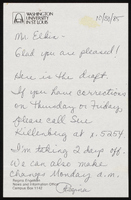 WASHINGTON
UNIVERSITY
IN ST. LOUIS
10/30/85
Mr. Elkin -
Glad you are pleased!
Here is the draft.
If you have corrections
on Thursday or Friday
please call Sue
Killenberg at x. 5254
I'm taking 2 days off.
We can also make
changes Monday a.m.
Regina
Regina Engelken
News and Information Office
Campus Box 1142